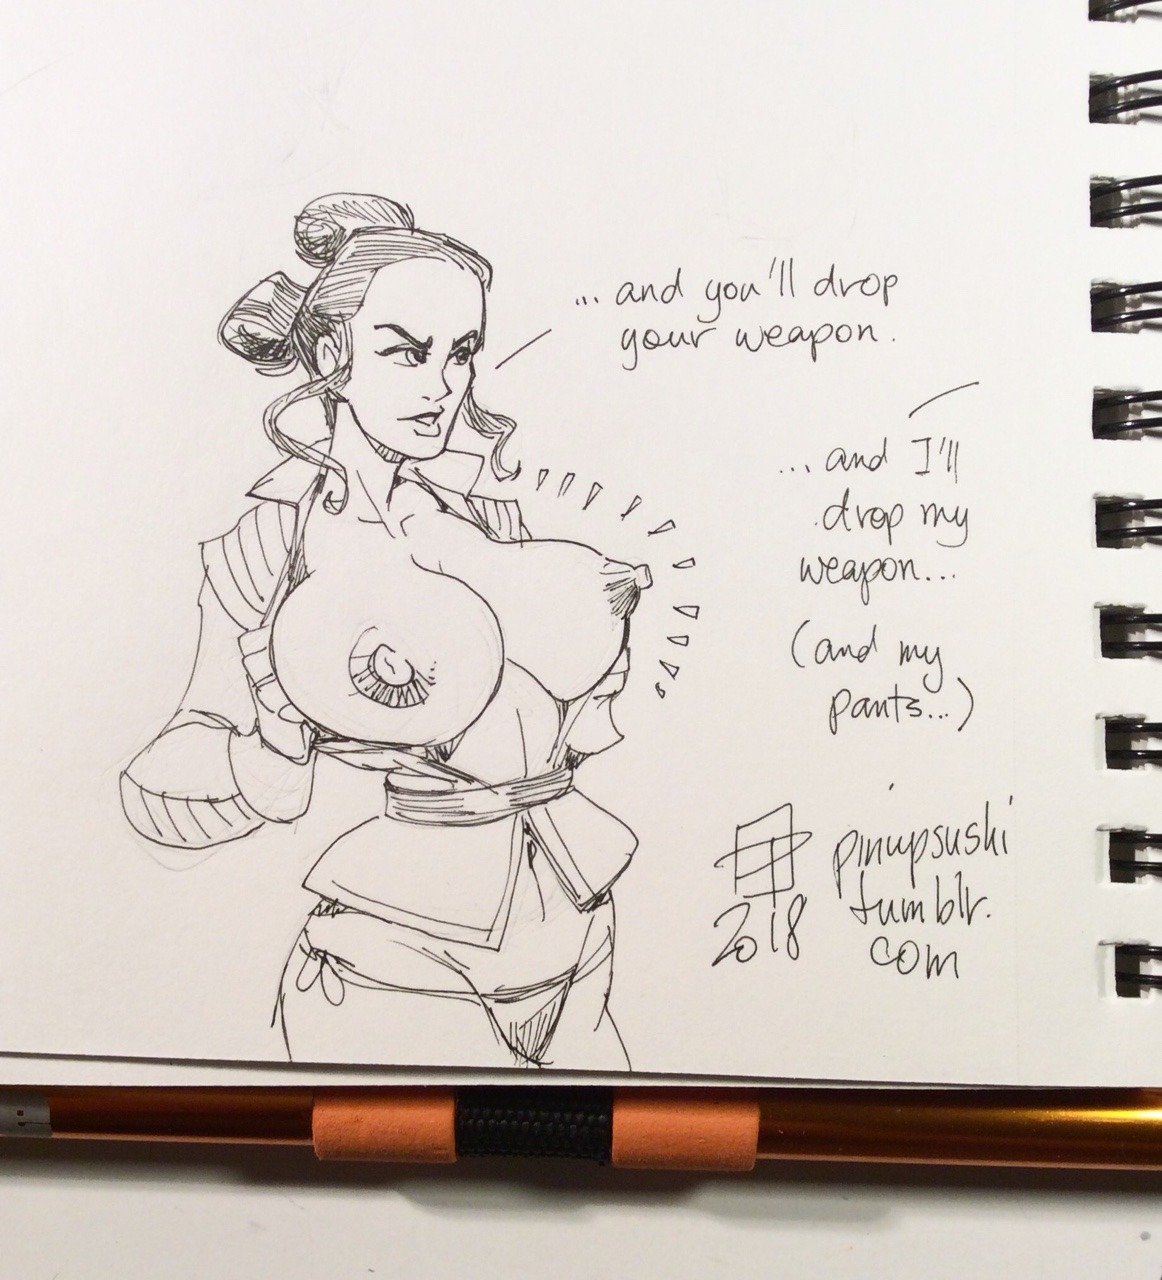 ... and you'll drop
your weapon.
... and I'll
drop my
weapon...
(and my
pants...)
2018
pinupsushi
tumblr.
com